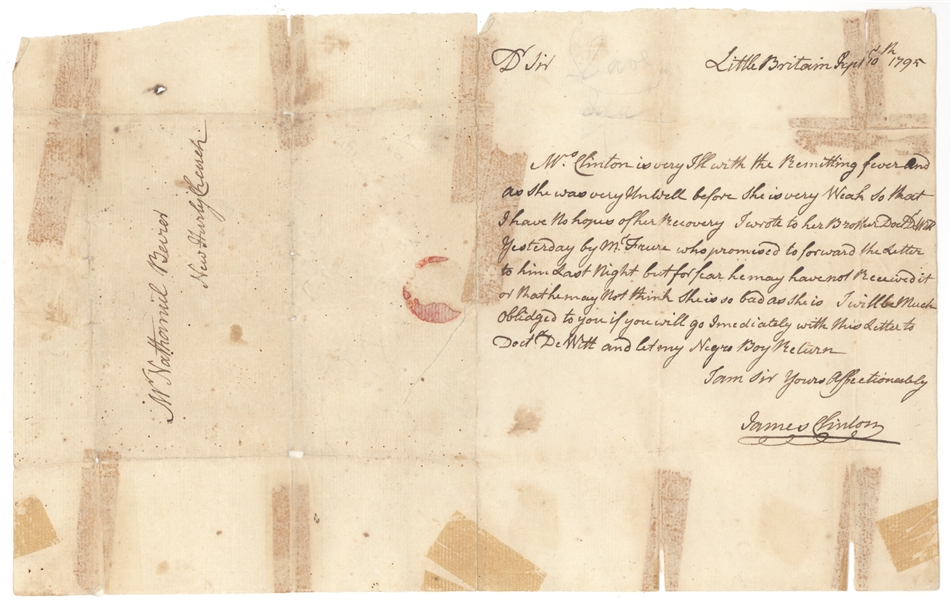 Dr Sir
Little Britain Sept 10th 1795
Mrs Clinton is very Ill with the Remitting fever and
as she was very UnWell before she is very Weak So that
I have No hopes of her Recovery I wrote to her Brother Doctr DeWitt
Yesterday by Mr. who promised to forward the Letter
to him Last Night but for fear he may have not Received it
or that he may Not think She is so bad as she is I will be Much
oblidged to you if you will go Imediately with this Letter to
Doctr DeWitt and let my Negro Boy Return
I am Sir Yours Affectionately
James Clinton
Mr Nathaniel Bevier
New Hurly